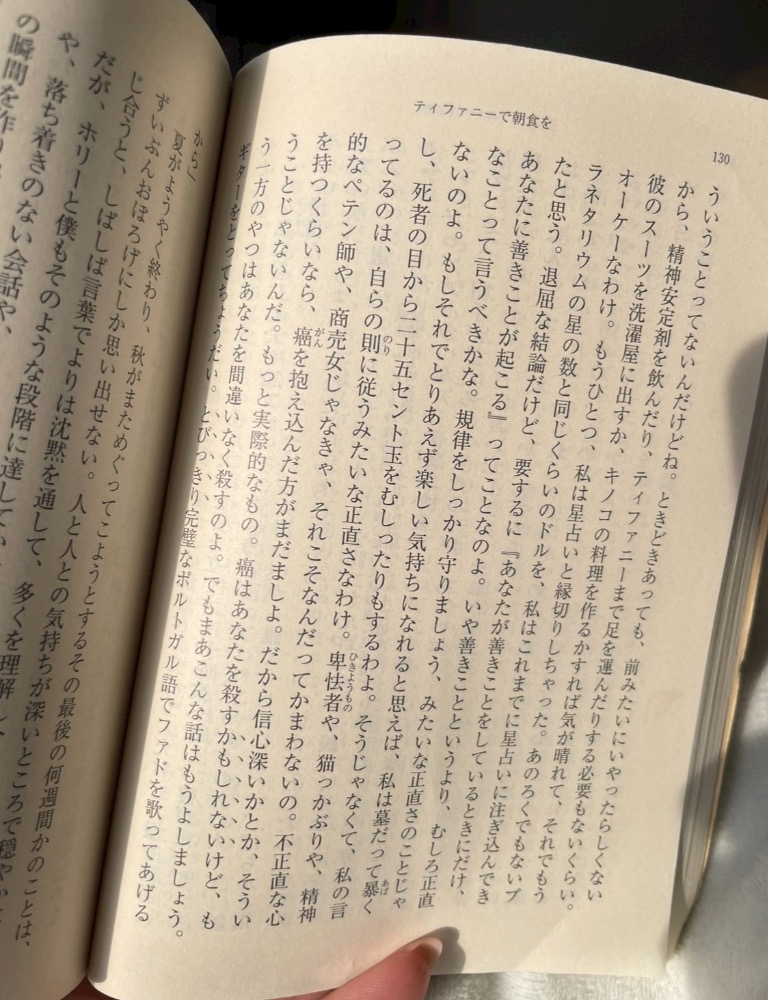 ティファニーで朝食を
130
ういうことってないんだけどね。ときどきあっても、前みたいにいやったらしくない
から、精神安定剤を飲んだり、ティファニーまで足を運んだりする必要もないくらい。
彼のスーツを洗濯屋に出すか、キノコの料理を作るかすれば気が晴れて、それでもう
オーケーなわけ。もうひとつ、私は星占いと縁切りしちゃった。あのろくでもないプ
ラネタリウムの星の数と同じくらいのドルを、私はこれまでに星占いに注ぎ込んでき
たと思う。退屈な結論だけど、要するに『あなたが善きことをしているときにだけ、
あなたに善きことが起こる』ってことなのよ。いや善きことというより、むしろ正直
なことって言うべきかな。規律をしっかり守りましょう、みたいな正直さのことじゃ
ないのよ。もしそれでとりあえず楽しい気持ちになれると思えば、私は墓だって暴く
し、死者の目から二十五セント玉をむしったりもするわよ。そうじゃなくて、私の言
ってるのは、自らの則に従うみたいな正直さなわけ。卑怯者や、猫っかぶりや、精神
的なペテン師や、商売女じゃなきゃ、それこそなんだってかまわないの。不正直な心
を持つくらいなら、癌を抱え込んだ方がまだましよ。だから信心深いかとか、そうい
うことじゃないんだ。もっと実際的なもの。癌はあなたを殺すかもしれないけど、も
う一方のやつはあなたを間違いなく殺すのよ。でもまあこんな話はもうよしましょう。
ギターをとってちょうだい。とびっきり完璧なポルトガル語でファドを歌ってあげる
から」
夏がようやく終わり、秋がまためぐってこようとするその最後の何週間かのことは、
ずいぶんおぼろげにしか思い出せない。人と人との気持ちが深いところで穏やかに
じ合うと、しばしば言葉でよりは沈黙を通して、多くを理解し
だが、ホリーと僕もそのような段階に達してい
や、落ち着きのない会話や、
の瞬間を作り